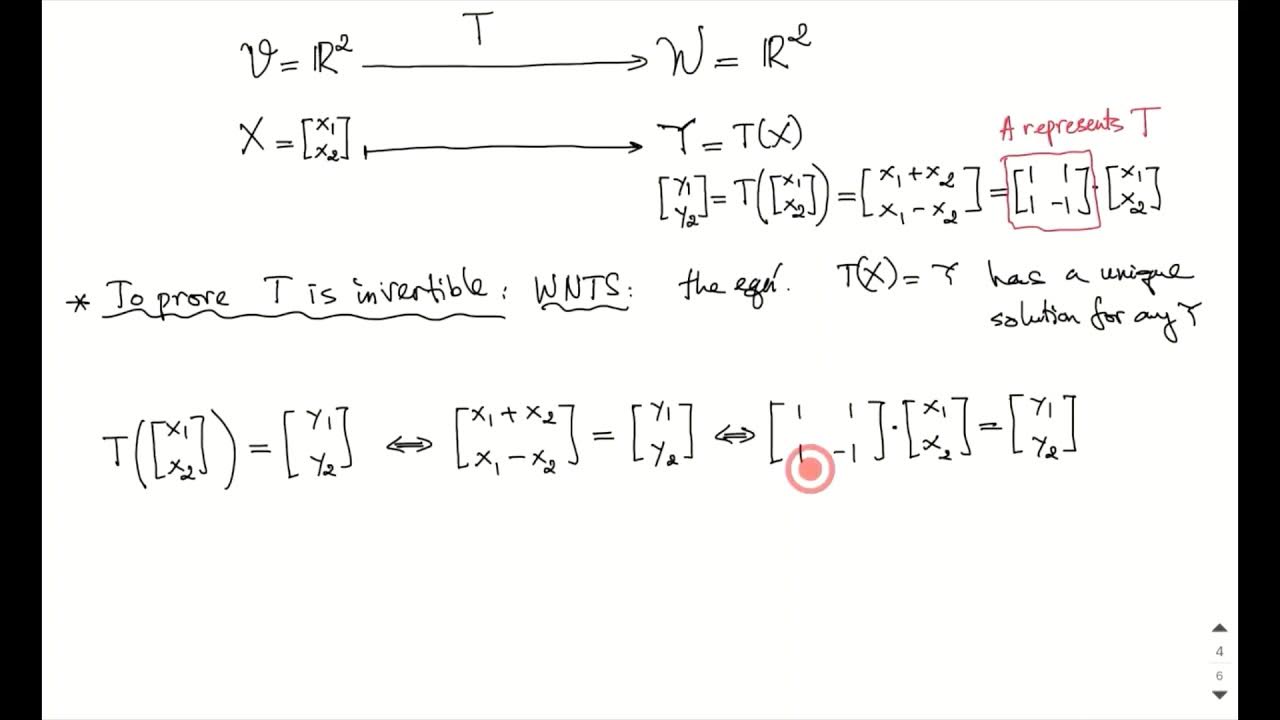 T
V = ℝ² ⟶ W = ℝ²
X = [x₁; x₂] ⟼ Y = T(X)
A represents T
[y₁; y₂] = T([x₁; x₂]) = [x₁ + x₂; x₁ − x₂] = [1 1; 1 −1] · [x₁; x₂]
* To prove T is invertible: WNTS: the eqn. T(X) = Y has a unique
solution for any Y
T([x₁; x₂]) = [y₁; y₂] ⟺ [x₁ + x₂; x₁ − x₂] = [y₁; y₂] ⟺ [1 1; 1 −1] · [x₁; x₂] = [y₁; y₂]
4
6